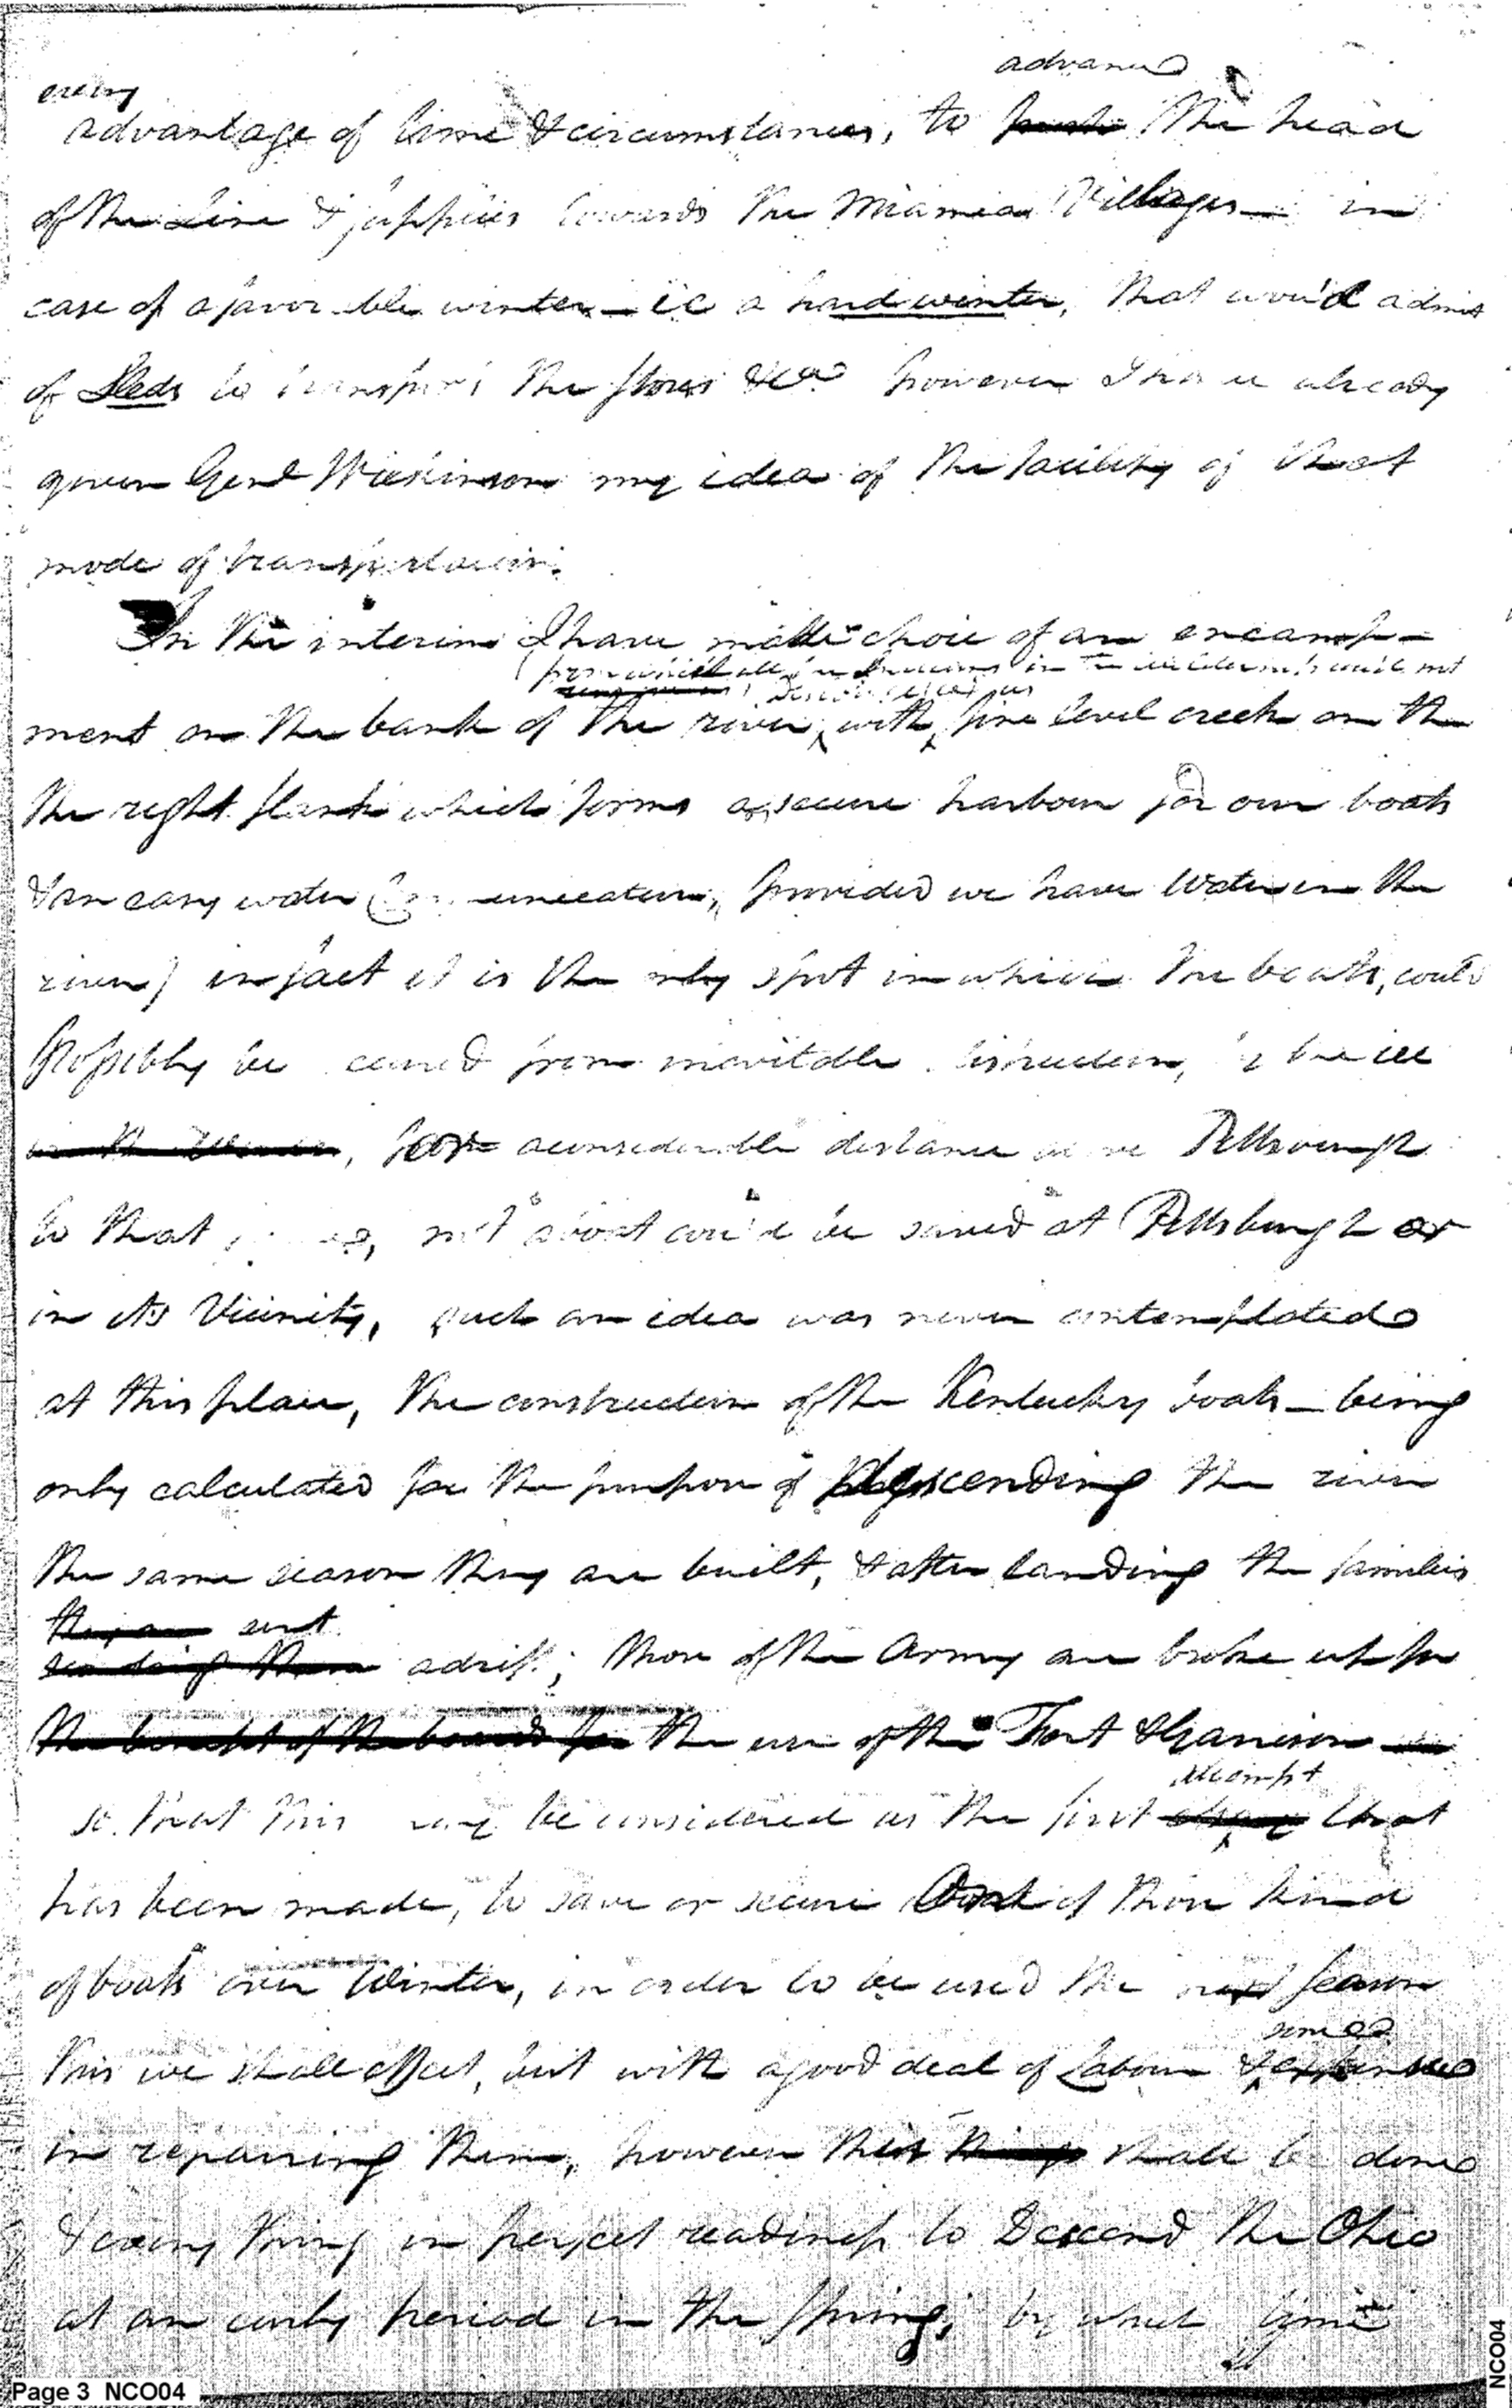 advance
every
advantage of time & circumstances, to push the head
of the line & supplies towards the Miamia Villages — in
case of a favorable winter — ie a hard winter, that wou'd admit
of Sleds to transport the stores &ca however I have already
given Genl Wilkinson my idea of the facility of that
mode of transportation.
In the interim I have made choice of an encamp-
in the
ment on the bank of the river, with fine level creek on the
the right flank which forms a secure harbour for our boats
& an easy water Communication, provided we have Water in the
river) in fact it is the only spot in which the boats, could
Possibly be secured from inevitable destruction, by the ice
, for a considerable distance above Pittsbourgh
to that not a boat cou'd be saved at Pittsburgh or
in its Vicinity, such an idea was never contemplated
at this place, the construction of the Kentucky boats — being
only calculated for the purpose of descending the river
the same season they are built, & after landing the families
they are sent
sending them adrift; those of the Army are broke up for
the benefit of the boards for the use of the Fort & Garrison
attempt
so that this may be considered as the first that
has been made, to save or secure of those kind
of boats over Winter, in order to be used the next season
some
this we shall effect, but with a good deal of Labour & expense
in repairing them, however this shall be done
& every thing in perfect readiness to Descend the Ohio
at an early period in the Spring; by what time
Page 3 NCO04
NCO04